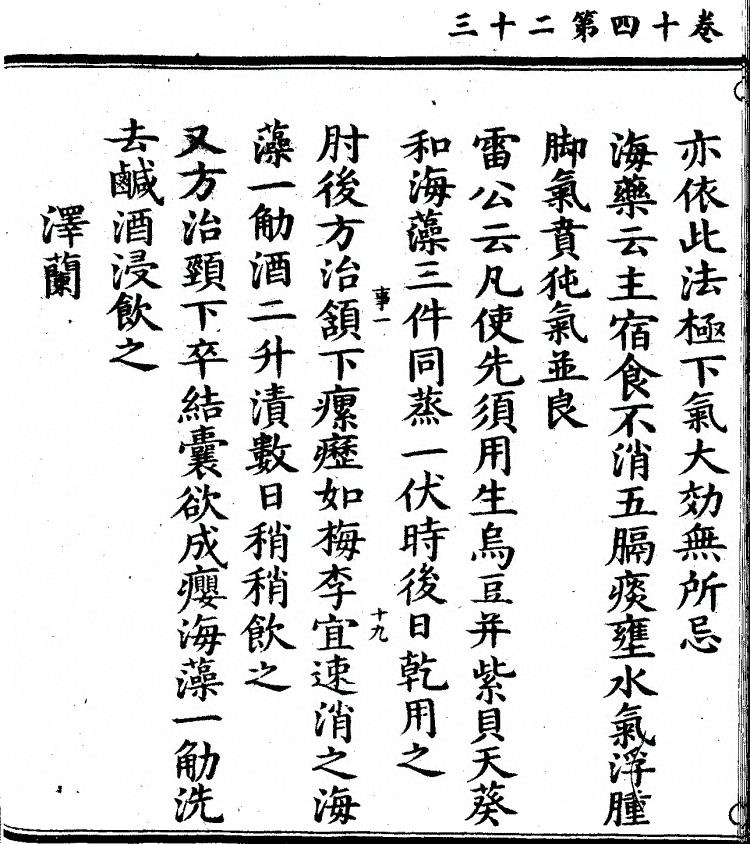 卷十四第二十三
亦依此法極下氣大効無所忌
海藥云主宿食不消五膈痰壅水氣浮腫
脚氣賁㹠氣並良
雷公云凡使先須用生烏豆并紫貝天葵
和海藻三件同蒸一伏時後日乾用之
事一
十九
肘後方治頷下瘰癧如梅李宜速消之海
藻一觔酒二升漬數日稍稍飲之
又方治頸下卒結囊欲成癭海藻一觔洗
去鹹酒浸飲之
澤蘭